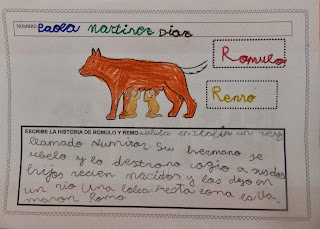 NOMBRE: Paola Martinez Díaz
Romulo
Remo
ESCRIBE LA HISTORIA DE ROMULO Y REMO: había en Italia un rey
llamado Numitor Su hermano se
rebelo y lo destrono cogio a sus dos
hijos recien nacidos y los dejo en
un rio una loba esta zona la lla
maron Roma